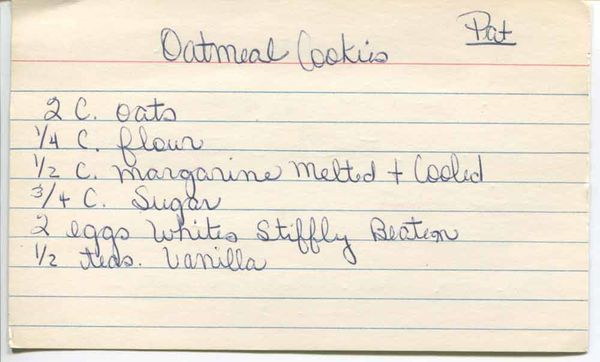 Pat
Oatmeal Cookies
2 C. oats
1/4 C. flour
1/2 C. margarine melted + Cooled
3/4 C. Sugar
2 eggs whites Stiffly Beaten
1/2 teas. Vanilla